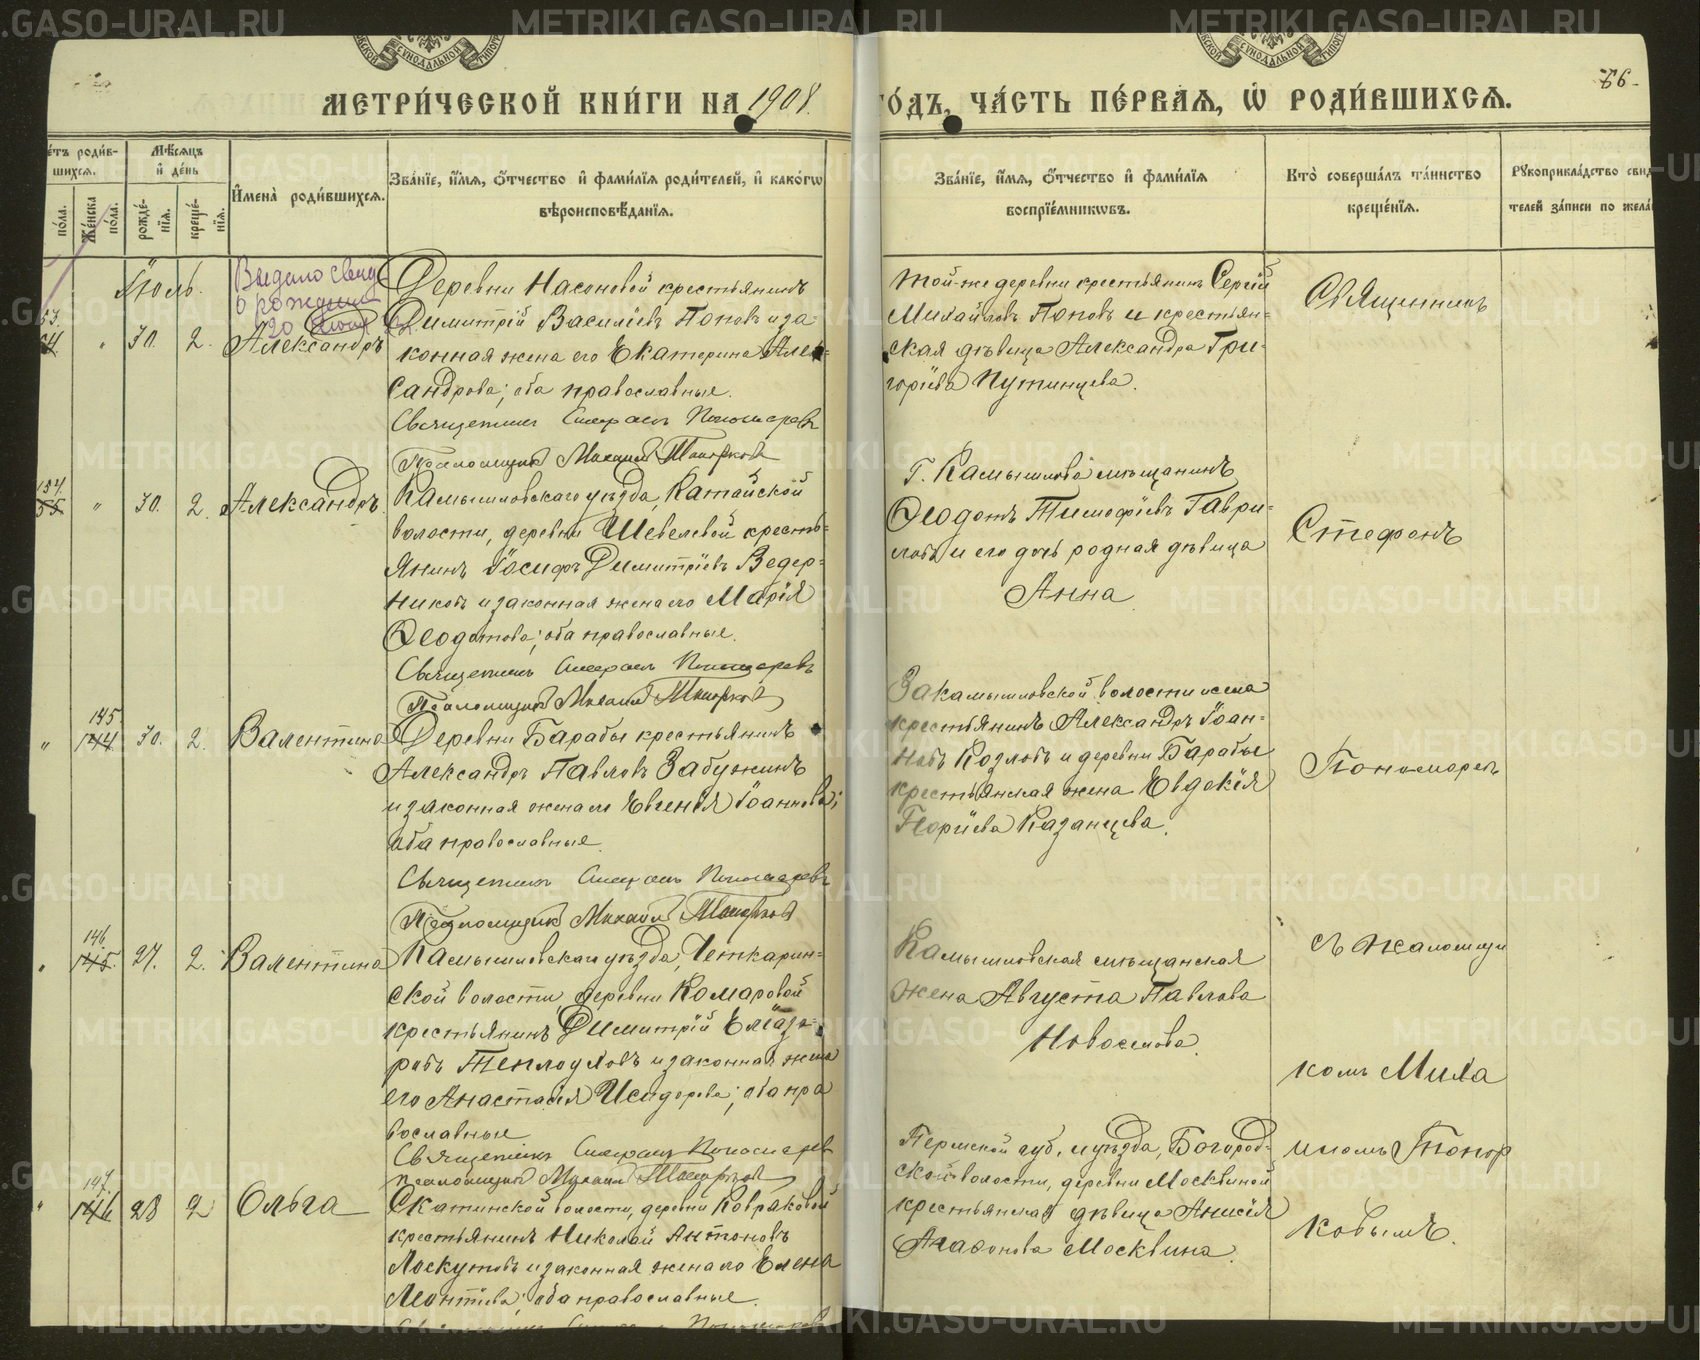 МЕТРИ́ЧЕСКОЙ КНИ́ГИ НА 1908.
ГО́ДЪ, ЧА́СТЬ ПЕ́РВАЯ, Ѡ РОДИ́ВШИХСЯ.
66.
е́тъ роди́в-
шихся.
Мѣ́сяцъ
и де́нь
по́ла.
Же́нска
по́ла.
рожде́-
нїя.
креще́-
нїя.
И҆мена̀ роди́вшихся.
Зва́нїе, и҆́мя, о҆́тчество и҆ фами́лїя роди́телей, и҆ како́гѡ
вѣроисповѣ́данїя.
Зва́нїе, и҆́мя, о҆́тчество и҆ фами́лїя
воспрїе́мникѡвъ.
Кто̀ соверша́лъ та́инство
креще́нїя.
Рꙋкоприкла́дство свид
телей за́писи по жела
Іюль.
Выдано свид
о рождении
20
53.
„
30.
2.
Александръ
Деревни Насоновой крестьянинъ
Димитрій Василіевъ Поповъ и за-
конная жена его Екатерина Алек-
сандрова; оба православные.
Священникъ Стефанъ Пономаревъ
Псаломщикъ Михаилъ Топорковъ
Той-же деревни крестьянинъ Сергій
Михайловъ Поповъ и крестьян-
ская дѣвица Александра Гри-
горіева Путинцева.
Священникъ
154
55
„
30.
2.
Александръ
Камышловскаго уѣзда, Катайской
волости, деревни Шевелевой кресть-
янинъ Іосифъ Димитріевъ Ведер-
никовъ и законная жена его Марія
Ѳеодотова; оба православные.
Священникъ Стефанъ Пономаревъ
Псаломщикъ Михаилъ Топорковъ
Г. Камышлова мѣщанинъ
Ѳеодотъ Тимофіевъ Гаври-
ловъ и его дочь родная дѣвица
Анна
Стефанъ
„
145.
144
30.
2.
Валентина
Деревни Барабы крестьянинъ
Александръ Павловъ Забужинъ
и законная жена его Евгенія Іоаннова;
оба православные.
Священникъ Стефанъ Пономаревъ
Псаломщикъ Михаилъ Топорковъ
Закамышловской волости и села
крестьянинъ Александръ Іоан-
новъ Козловъ и деревни Барабы
крестьянская жена Евдокія
Георгіева Казанцева.
Пономаревъ
„
146.
145.
27.
2.
Валентина
Камышловскаго уѣзда, Четкарин-
ской волости деревни Комаровой
крестьянинъ Димитрій Еліаза-
ровъ Теплоуховъ и законная жена
его Анастасія Исидорова; оба пра
вославные
Священникъ Стефанъ Пономаревъ
Псаломщикъ Михаилъ Топорковъ
Камышловская мѣщанская
жена Августа Павлова
Новоселова.
съ псаломщи
комъ Миха
„
147.
146
28
2
Ольга
Скатинской волости, деревни Ковраковой
крестьянинъ Николай Антоновъ
Лоскутовъ и законная жена его Елена
Леонтіева; оба православные.
Пермской губ. и уѣзда, Богород-
ской волости, деревни Москвиной
крестьянская дѣвица Анисія
Агафонова Москвина.
иломъ Топор
ковымъ.
METRIKI.GASO-URAL.RU